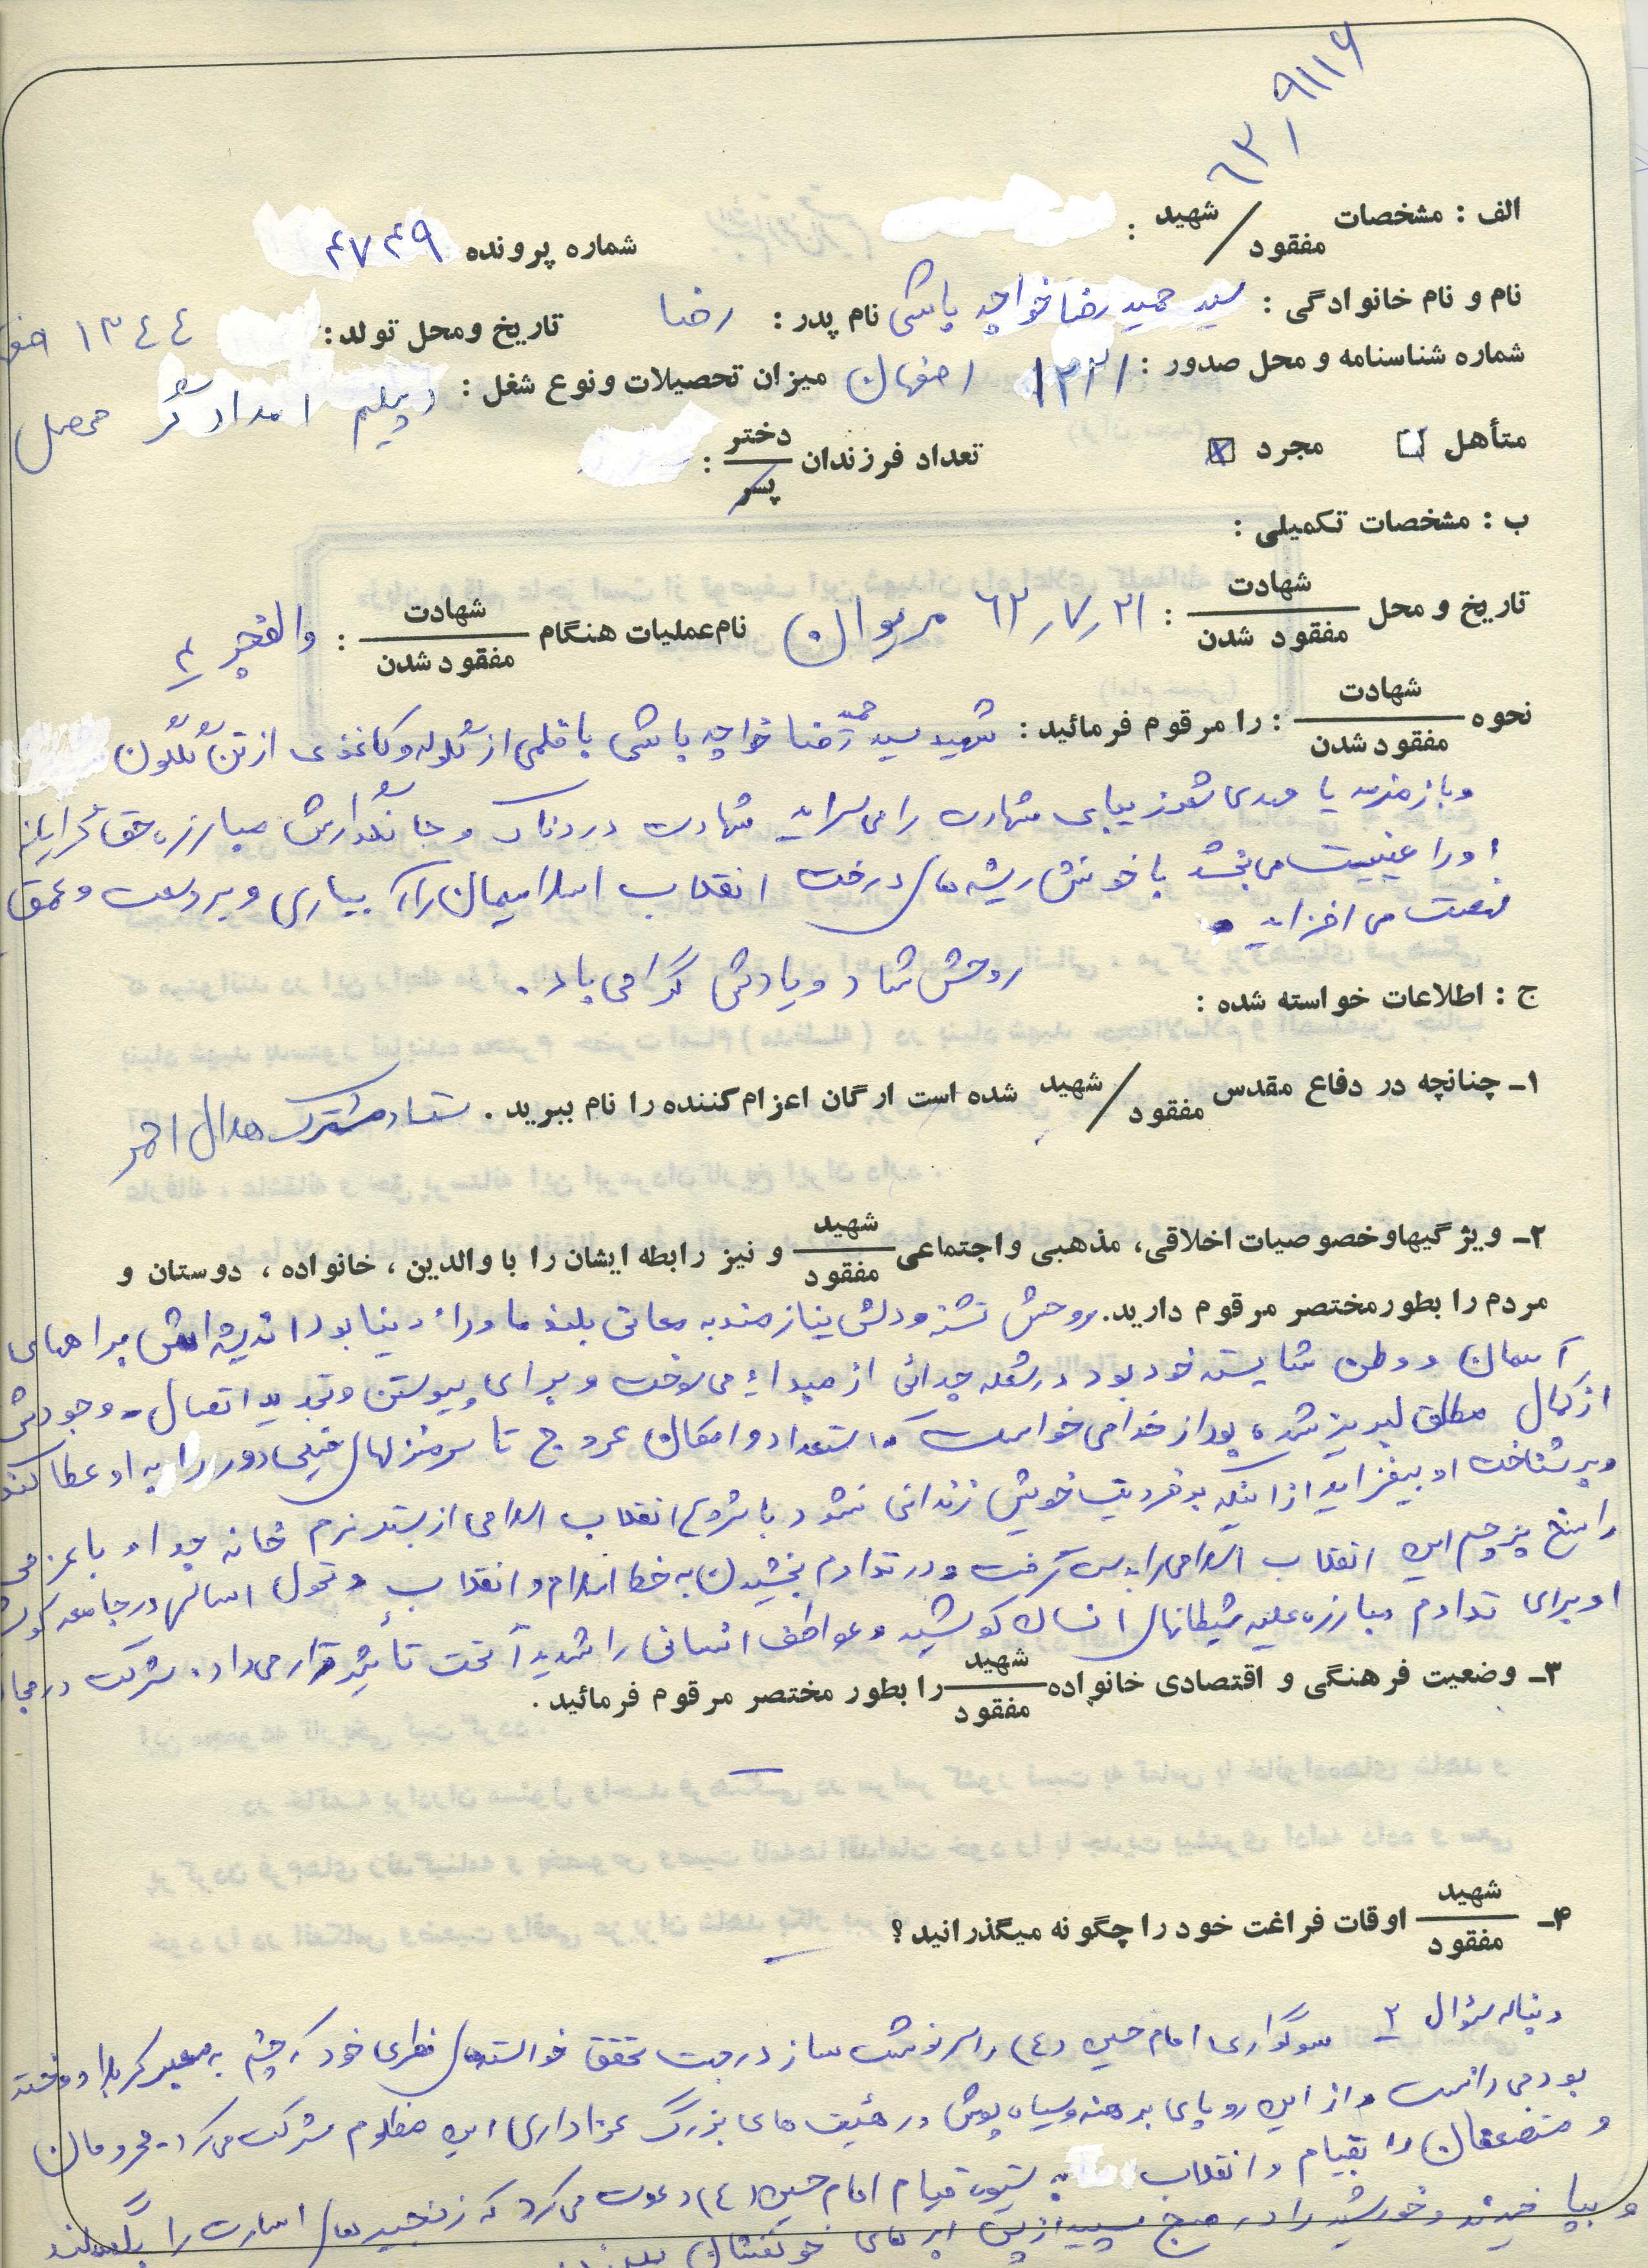 ۶۳٫۹۱۱۶
الف : مشخصات شهید / مفقود :
شماره پرونده ۴۷۴۹
نام و نام خانوادگی : سید حمید رضا خواجه باشی نام پدر : رضا تاریخ ومحل تولد: ۱۳٤٤
شماره شناسنامه و محل صدور : ۱۳۲۱ اصفهان میزان تحصیلات ونوع شغل : دیپلم امدادگر محصل
متأهل مجرد تعداد فرزندان دختر / پسر :
ب : مشخصات تکمیلی :
تاریخ و محل شهادت / مفقود شدن : ۶۲٫۷٫۲۱ مریوان نام عملیات هنگام شهادت / مفقود شدن : والفجر ۴
نحوه شهادت / مفقود شدن : را مرقوم فرمائید : شهید سید حمید رضا خواجه باشی با قلمی از گلوله و کاغذی از تن گلگون
و باز مزمه یا مهدی شعر زیبای شهادت را می سراید شهادت دردناک و جانگدازش مبارزه حق گرایانه
او را عینیت می بخشد با خونش ریشه های درخت انقلاب اسلامیمان را آبیاری و بر وسعت و عمق
نهضت می افزاید
روحش شاد و یادش گرامی باد .
ج : اطلاعات خواسته شده :
۱ـ چنانچه در دفاع مقدس شهید / مفقود شده است ارگان اعزام کننده را نام ببرید . ستاد مشترک هلال احمر
۲ـ ویژگیهاوخصوصیات اخلاقی، مذهبی واجتماعی شهید / مفقود و نیز رابطه ایشان را با والدین ، خانواده ، دوستان و
مردم را بطورمختصر مرقوم دارید. روحش تشنه و دلش نیازمند به معانی بلند ماوراء دنیا بود اندیشه اش براههای
آسمان و وطن شایسته خود بود در شعله جدائی از مبداء می سوخت و برای پیوستن و تجدید اتصال وجودش
از کمال مطلق لبریز شده بود از خدا می خواست که استعداد و امکان عروج تا سرمنزلهای خیلی دور را به او عطا کند
و بر شناخت او بیفزاید از اینکه در فردیت خویش زندانی نشود با شروع انقلاب اسلامی از بستر نرم خانه جدا و با عزمی
راسخ پرچم این انقلاب اسلامی را بدست گرفت و در تداوم بخشیدن به خط اسلام و انقلاب و تحول اساسی در جامعه
او برای تداوم مبارزه علیه شیطانهای انسان کوشید و عواطف انسانی را شدیداً تحت تأثیر قرار می داد . شرکت در
۳ـ وضعیت فرهنگی و اقتصادی خانواده شهید / مفقود را بطور مختصر مرقوم فرمائید .
۴ـ شهید / مفقود اوقات فراغت خود را چگونه میگذرانید ؟
دنباله سؤال ۲ سوگواری امام حسین (ع) را سرنوشت ساز در جهت تحقق خواسته های فطری خود که چشم به مسیر کربلا دوخته
بود می دانست و از این رو پای برهنه و سیاه پوش در هیئت های بزرگ عزاداری این مظلوم شرکت می کرد . محرومان
و مستضعفان را بقیام و انقلاب به شیوه قیام امام حسین (ع) دعوت می کرد که زنجیرهای اسارت را بگسلند
و بپا خیزند و خورشید را در صبح سپید از پس ابرهای